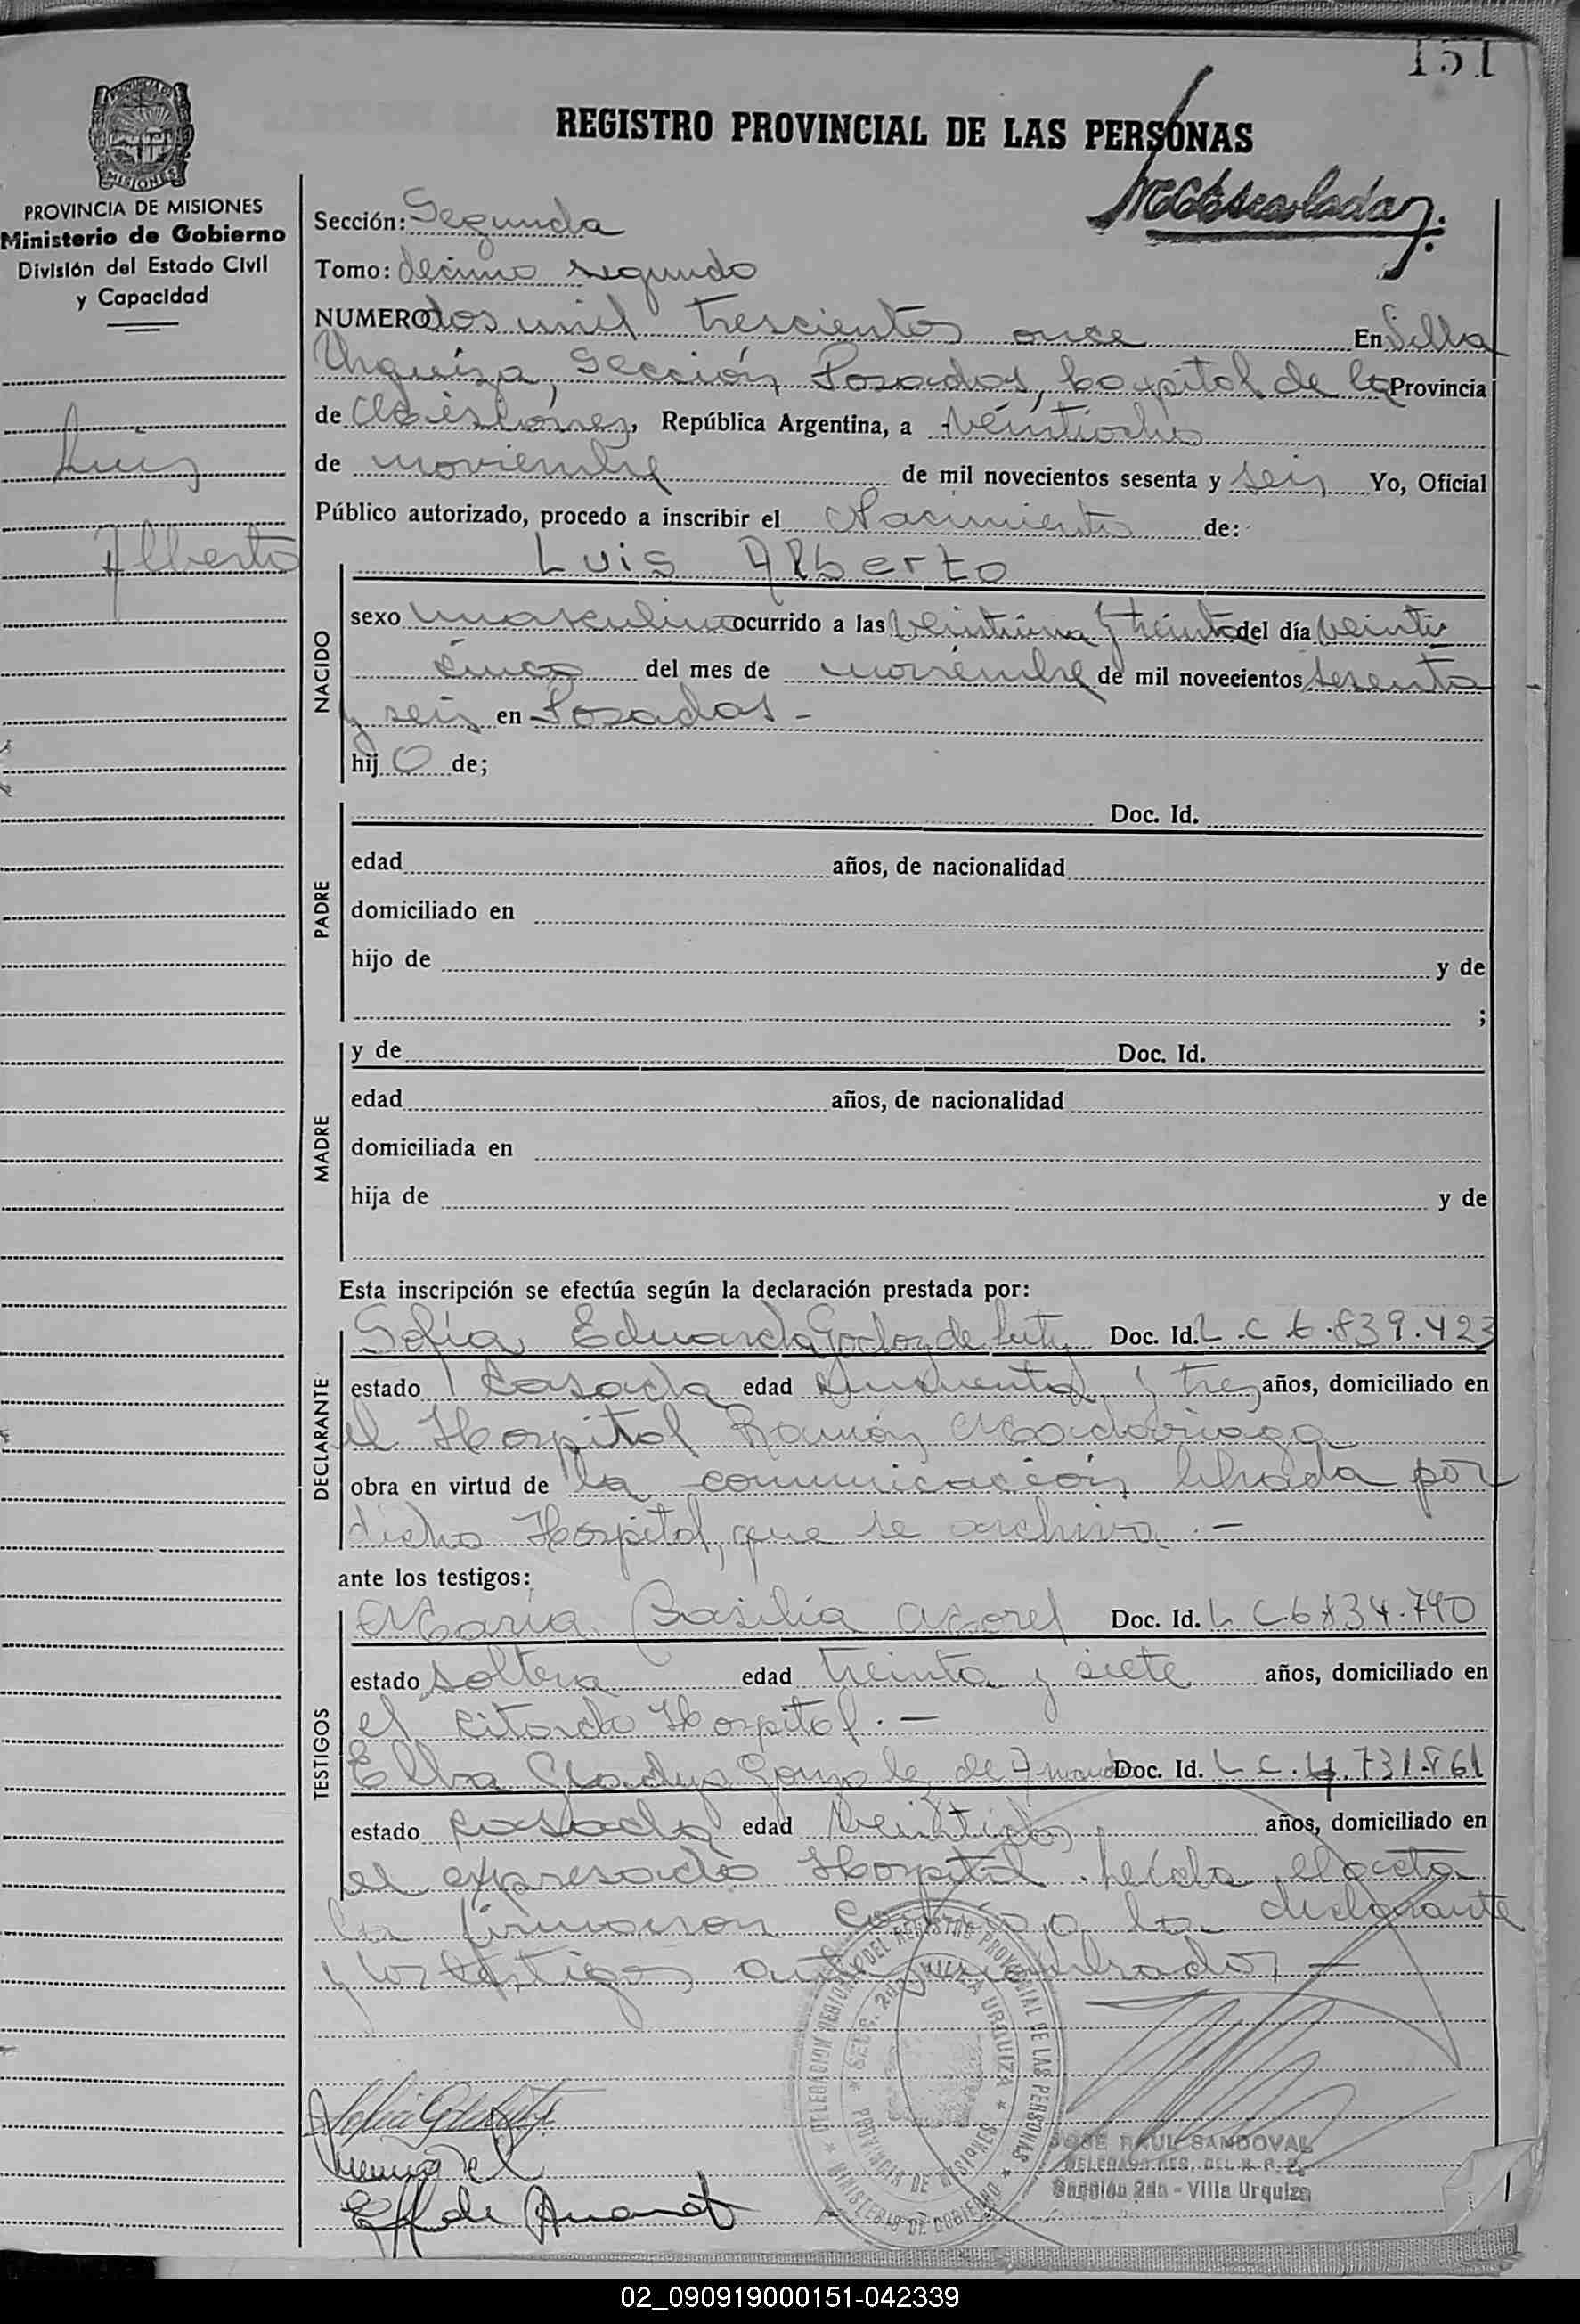 151
REGISTRO PROVINCIAL DE LAS PERSONAS
MISIONES
PROVINCIA DE MISIONES
Ministerio de Gobierno
División del Estado Civil
y Capacidad
Luis
Alberto
Sección: Segunda
Tomo: décimo segundo
NUMERO dos mil trescientos once En Villa
Urquiza, Sección Posadas, capital de la Provincia
de Misiones, República Argentina, a veintiocho
de noviembre de mil novecientos sesenta y seis Yo, Oficial
Público autorizado, procedo a inscribir el Nacimiento de:
NACIDO
Luis Alberto
sexo masculino ocurrido a las veintiuna y treinta del día veinti
cinco del mes de noviembre de mil novecientos sesenta
y seis en Posadas -
hij o de;
PADRE
Doc. Id.
edad años, de nacionalidad
domiciliado en
hijo de y de
;
MADRE
y de Doc. Id.
edad años, de nacionalidad
domiciliada en
hija de y de
Esta inscripción se efectúa según la declaración prestada por:
DECLARANTE
Sofía Eduarda Godoy de Doc. Id. L.C 6.839.423
estado casada edad cincuenta y tres años, domiciliado en
el Hospital Ramón Madariaga
obra en virtud de la comunicación librada por
dicho Hospital, que se archiva. -
ante los testigos:
TESTIGOS
María Basilia Doc. Id. L C.6834.740
estado soltera edad treinta y siete años, domiciliado en
el citado Hospital. -
Elba Gladys Gonzalez de Doc. Id. L C. 4.731.861
estado casada edad veintidós años, domiciliado en
el expresado Hospital. Leída el acta
la firmaron la declarante
y los testigos -
DELEGACION REGIONAL DEL REGISTRO PROVINCIAL DE LAS PERSONAS
* MINISTERIO DE GOBIERNO *
* SECC. 2da VILLA URQUIZA *
PROVINCIA DE MISIONES
JOSE RAUL SANDOVAL
DELEGADO REG. DEL R. P. P.
Sección 2da - Villa Urquiza
02_090919000151-042339